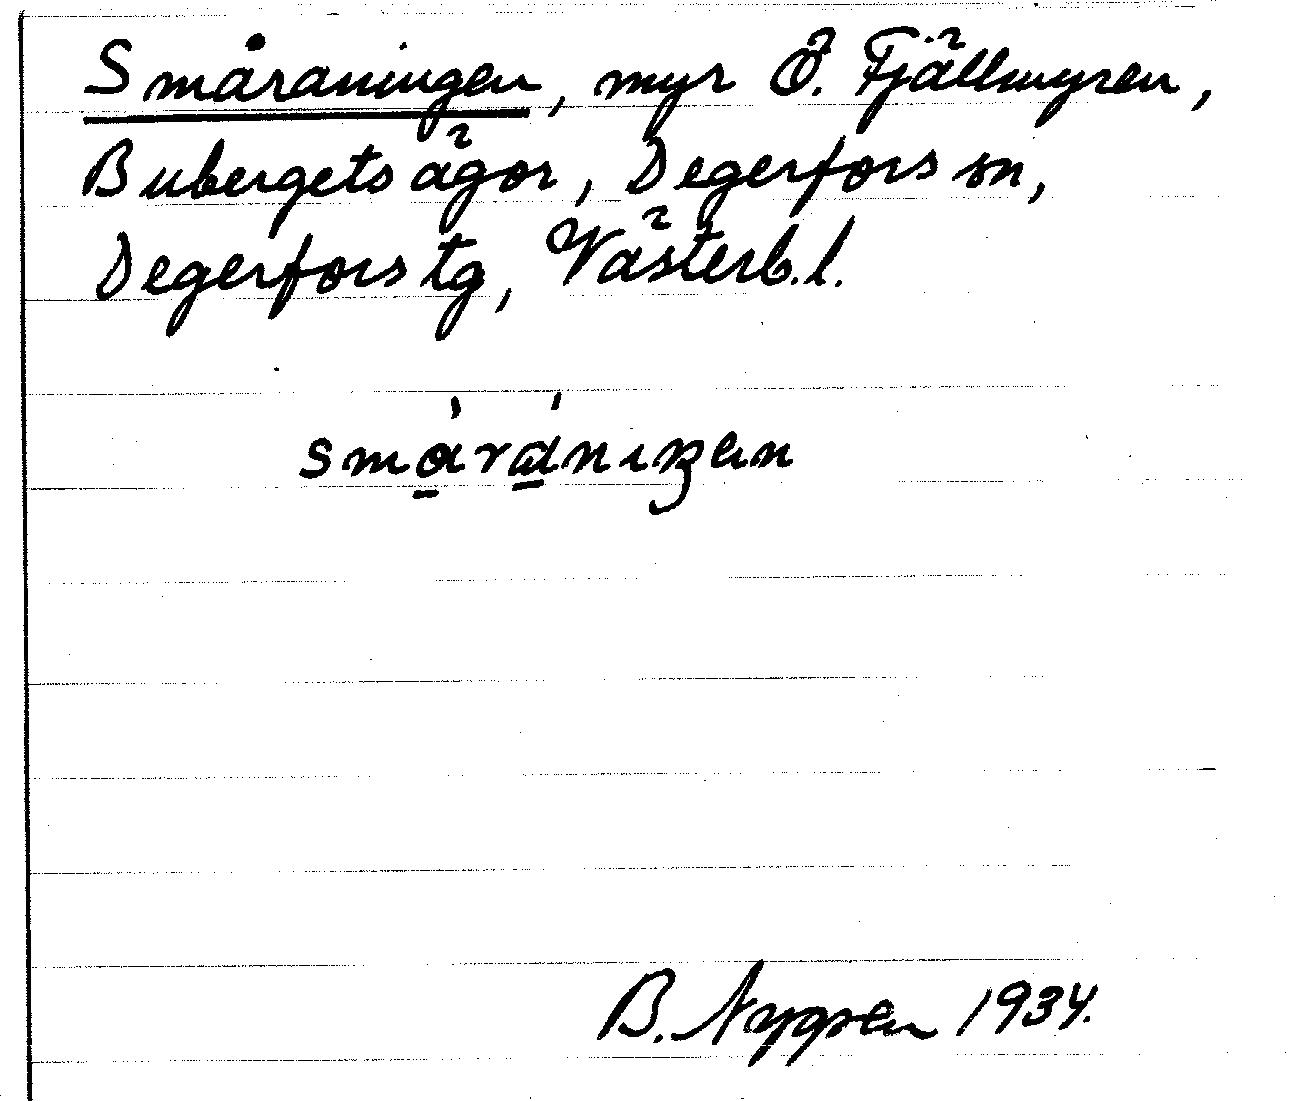 Småraningen, myr Ö. Fjällmyren,
Bubergets ägor, Degerfors sn,
Degerfors tg, Västerb. l.
småraniŋen
B. Nygren 1934.